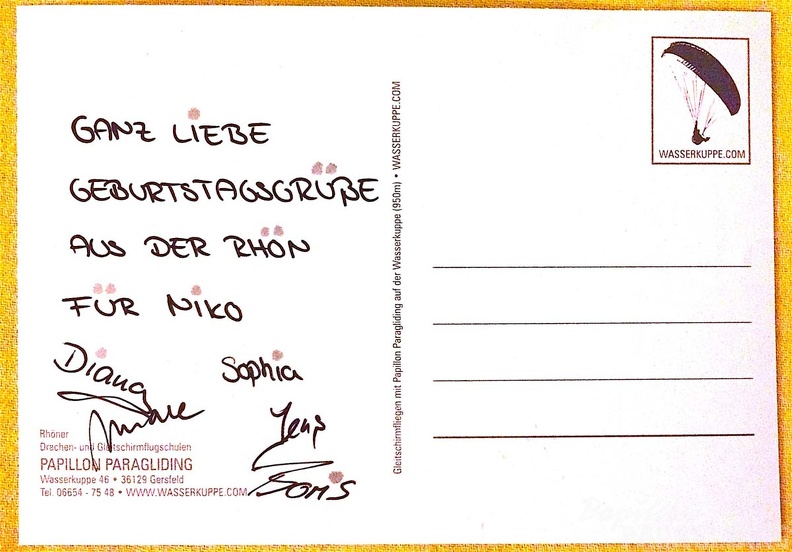 GANZ LIEBE
GEBURTSTAGSGRÜßE
AUS DER RHÖN
FÜR NIKO
Diana
Sophia
Jens
Boris
Rhöner
Drachen- und Gleitschirmflugschulen
PAPILLON PARAGLIDING
Wasserkuppe 46 • 36129 Gersfeld
Tel. 06654 - 75 48 • WWW.WASSERKUPPE.COM
Gleitschirmfliegen mit Papillon Paragliding auf der Wasserkuppe (950m) • WASSERKUPPE.COM
WASSERKUPPE.COM